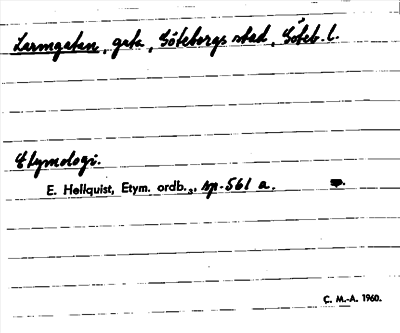 Larmgatan, gata, Göteborgs stad, Göteb. l.
Etymologi.
E. Hellquist, Etym. ordb.3, sp. 561 a.
C. M.-A. 1960.